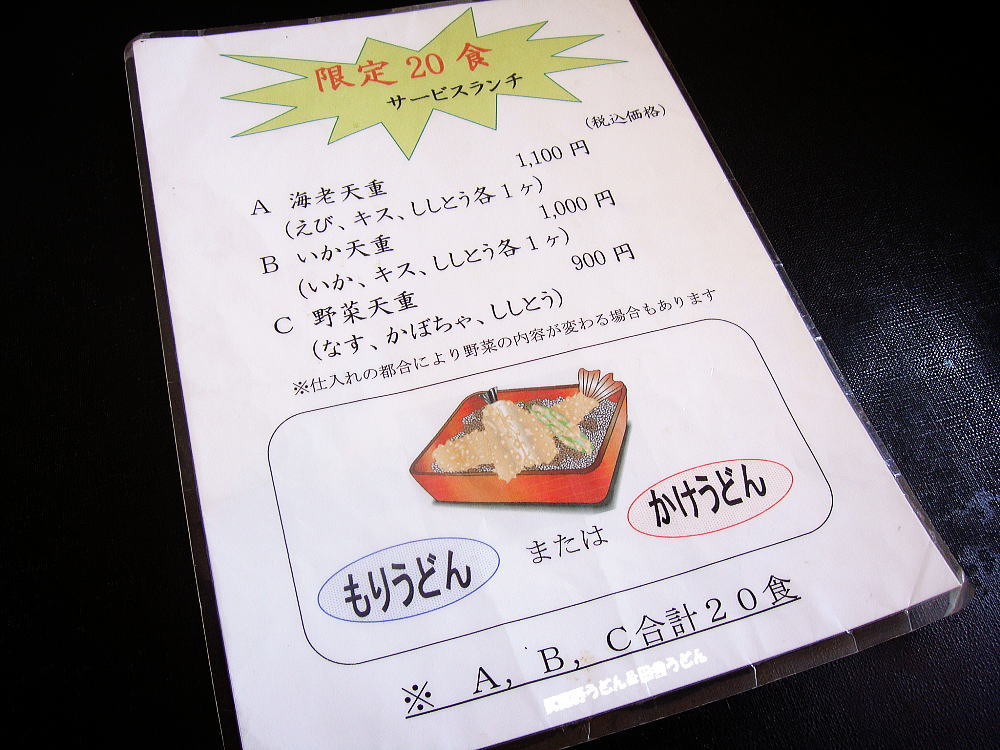 限定20食
サービスランチ
(税込価格)
A 海老天重 1,100 円
(えび、キス、ししとう各1ヶ)
B いか天重 1,000 円
(いか、キス、ししとう各1ヶ)
C 野菜天重 900 円
(なす、かぼちゃ、ししとう)
※仕入れの都合により野菜の内容が変わる場合もあります
もりうどん または かけうどん
※ A, B, C合計20食
うどん&田舎うどん